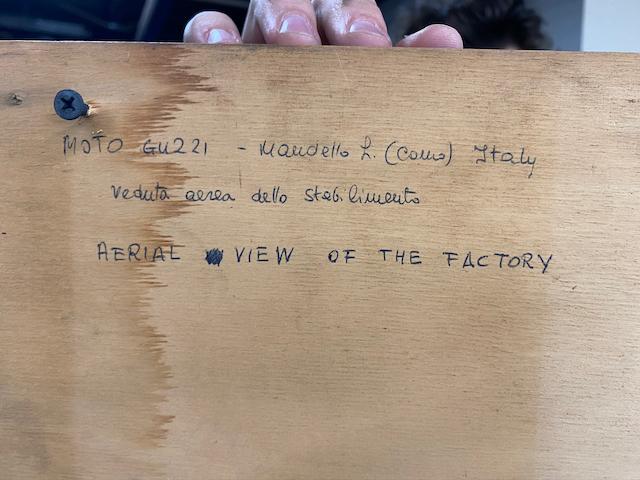 MOTO GUZZI - Mandello L. (Como) Italy
veduta aerea dello stabilimento
AERIAL VIEW OF THE FACTORY